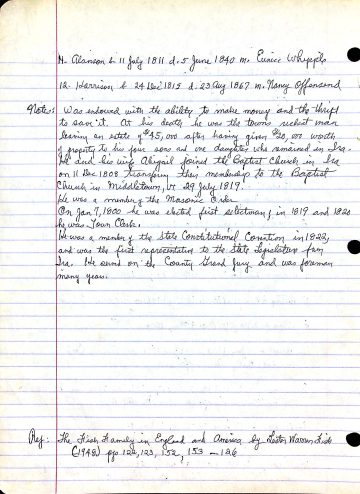 11. Alanson b 11 July 1811 d. 5 June 1840 m. Eunice Whipple
12. Harrison b 24 Dec 1815 d. 23 Aug 1867 m. Nancy
Notes: Was endowed with the ability to make money and the thrift
to save it. At his death, he was the towns richest man
leaving an estate of $45,000 after having given $20,000 worth
of property to his four sons and one daughter who remained in Ira.
He and his wife Abigail joined the Baptist Church in Ira
on 11 Dec 1808 transfering their membership to the Baptist
Church in Middletown, Vt 29 July 1819.
He was a member of the Masonic Order.
On Jan 7, 1800 he was elected first selectman; in 1819 and 1820
he was Town Clerk.
He was a member of the State Constitutional Convention in 1822,
and was the first representative to the State Legislature from
Ira. He served on the County Grand Jury and was foreman
many years.
Ref: The Fish Family in England and America by Lester Warren Fish
(1948) pgs 122, 123, 152, 153 - 186